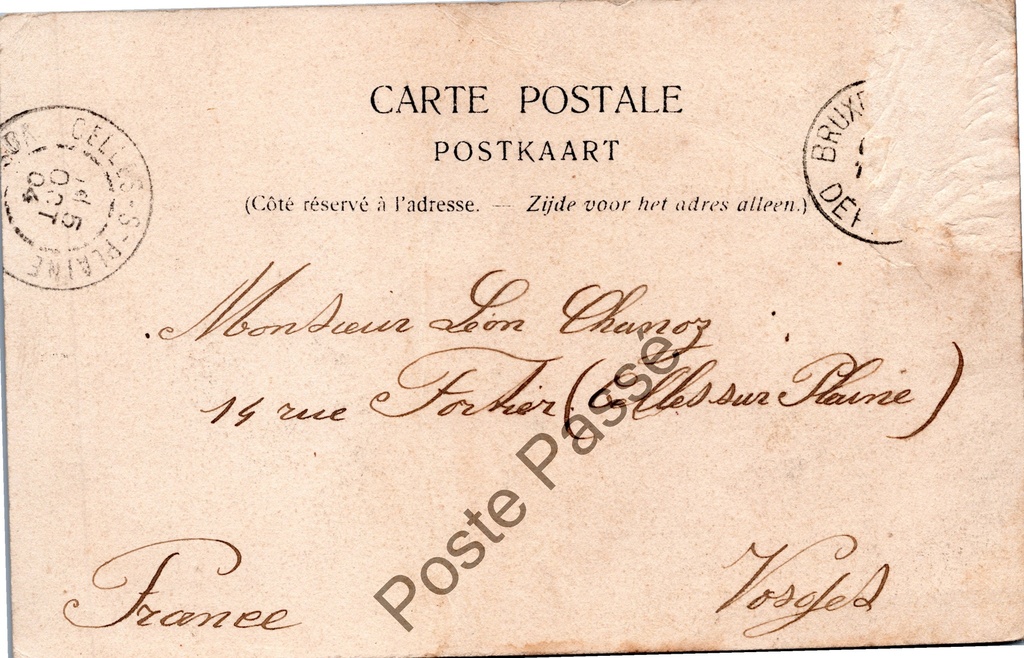 CARTE POSTALE
POSTKAART
(Côté réservé à l'adresse. — Zijde voor het adres alleen.)
CELLES-S-PLAINE
5
OCT
04
BRUXE
DÉP
Monsieur Léon Chanoz
14 rue Fortier (Celles sur Plaine)
Vosges
France
Poste Passé